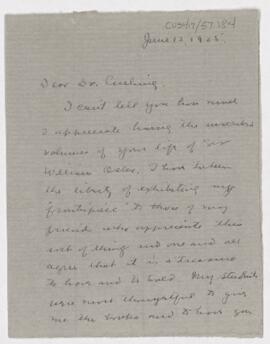 CUS417/57.184
June 12 1925
Dear Dr. Cushing,
I can't tell you how much
I appreciate having the inscribed
volumes of your life of Sir
William Osler. I have taken
the liberty of exhibiting my
"frontispiece" to those of my
friends who appreciate this
sort of thing and one and all
agree that it is a treasure
to have and to hold. My students
were most thoughtful to give
me the books and to have you